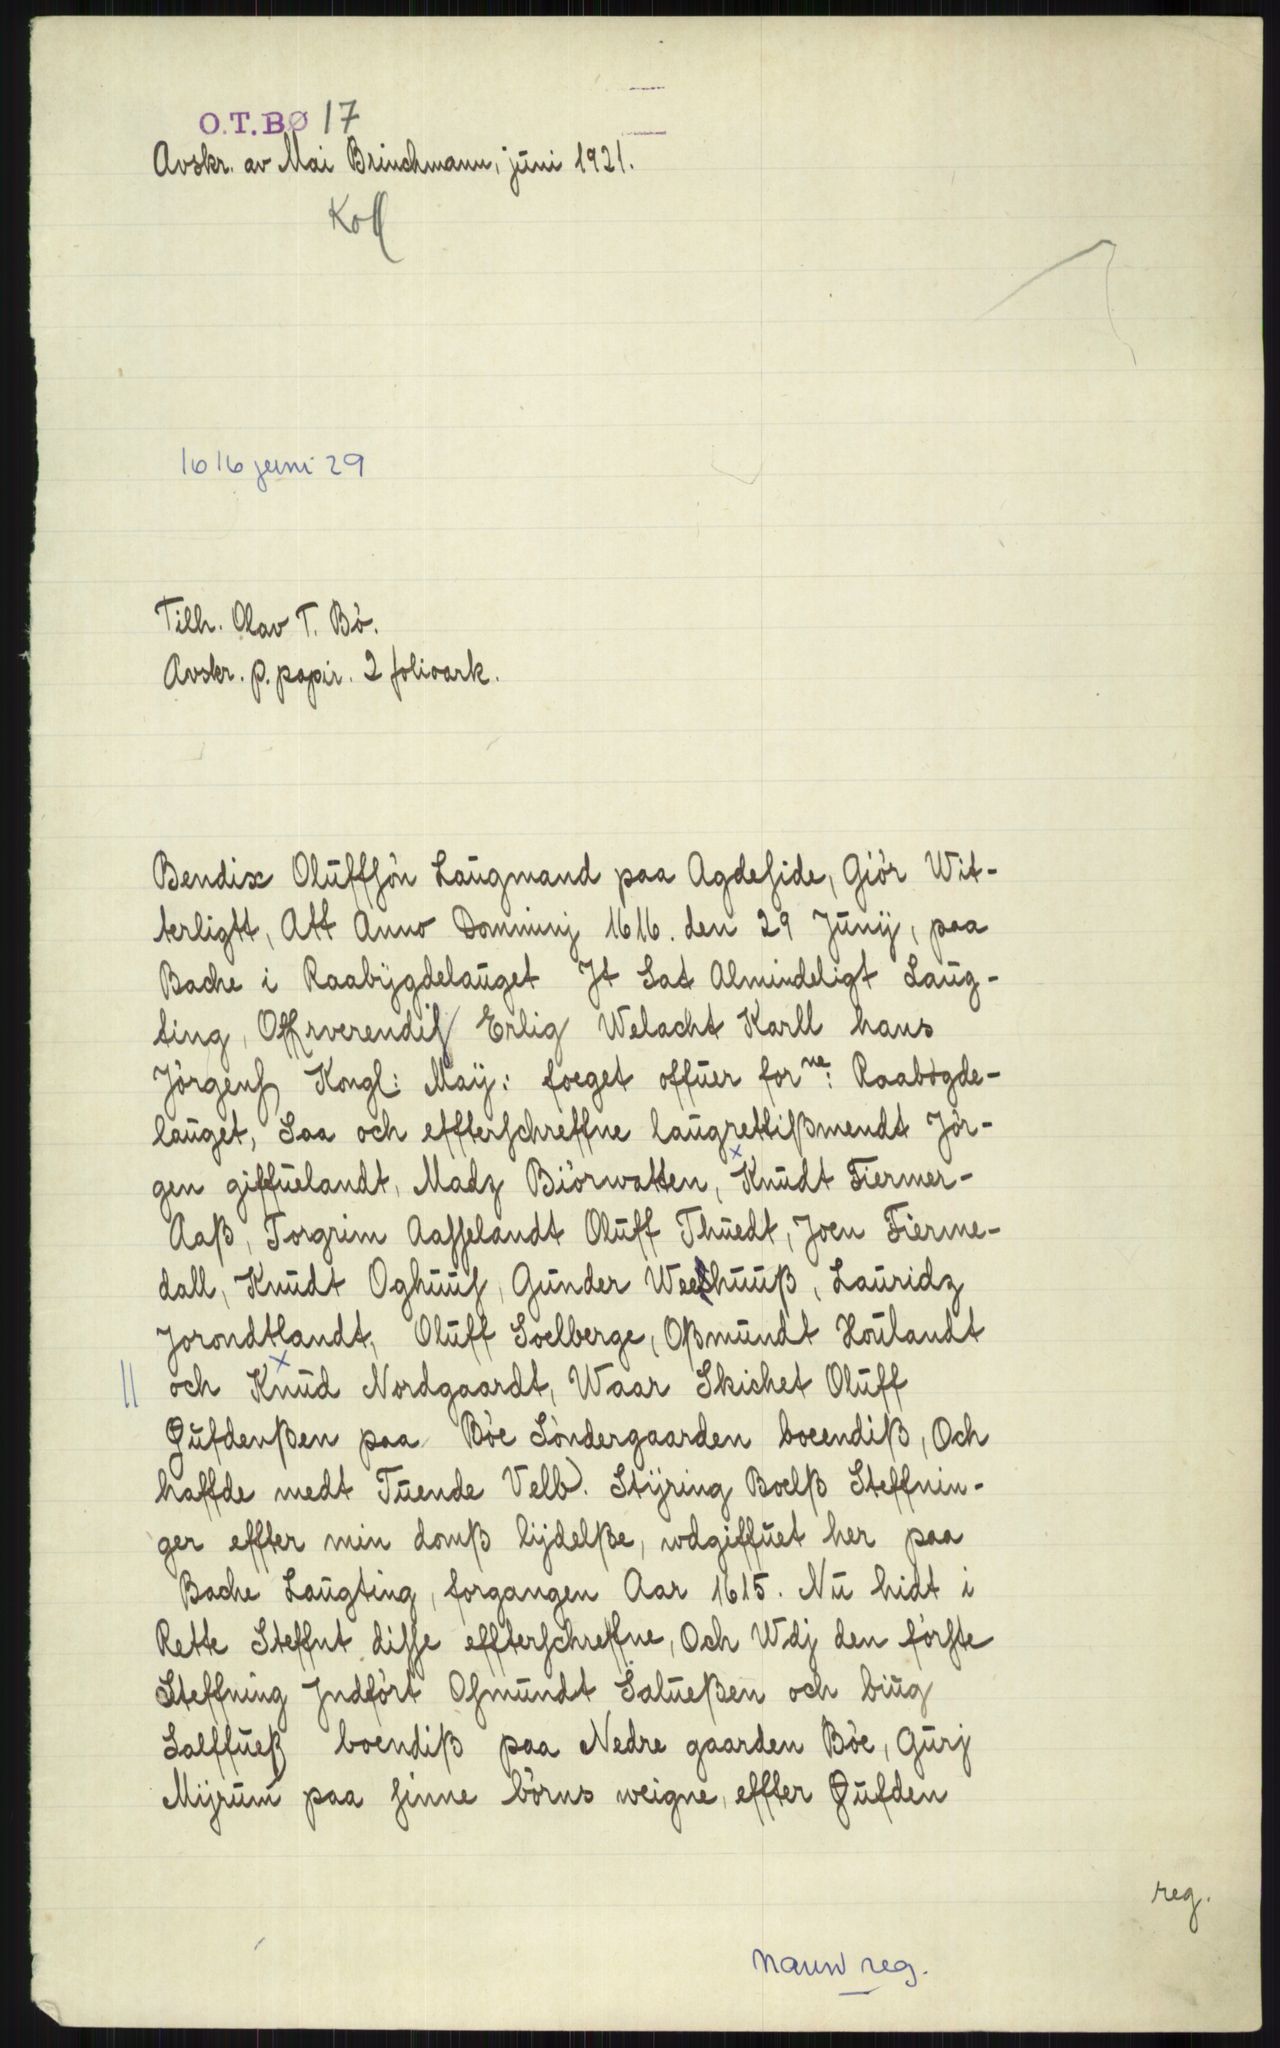 O.T.BØ 17
Avskr. av Mai Brinchmann, juni 1921.
Koll
1616 juni 29
Tilh. Olav T. Bö.
Avskr. p. papir. 2 folioark.
Bendix Olüffsön Laügmand paa Agdeside, Giör Wit-
terligtt, Att Anno Domminj 1616. den 29 Junij, paa
Bache i Raabÿgdelaüget Jt Sat Almindeligt Laüg-
ting, Offrverendis Erlig Welacht Karll hans
Jörgens Kongl: Maÿ: foeget offüer forne: Raabögde-
laüget, Saa och effterschreffne laügrettißmendt Jör-
gen giffüelandt, Madz Biörwatten, Knüdt Fiermer-
Aaß, Torgrim Aasselandt Olüff Thüedt, Joen Fierme-
dall, Knüdt Oghüüs, Günder Weehüüß, Lauridz
Jorondtlandt, Olüff Soelberge, Oßmündt Hoülandt
och Knüd Nordgaardt, Waar Skichet Olüff
Güfdenßen paa Böe Söndergaarden boeendiß, Och
haffde medt Tüende Velb. Stÿring Boelß Steffnin-
ger effter min domß lijdelße, wdgiffüet her paa
Bache Laügting, forgangen Aar 1615. Nü hidt i
Rette Steffnt disse effterschreffne, Och Wdj den förste
Steffning Jndfört Osmündt Salüeßen och biüg
Salffüeß boendiß paa Nedre gaarden Böe, Gürj
Mijrüm paa sinne börns weigne, effter Güfden
reg.
navn reg.